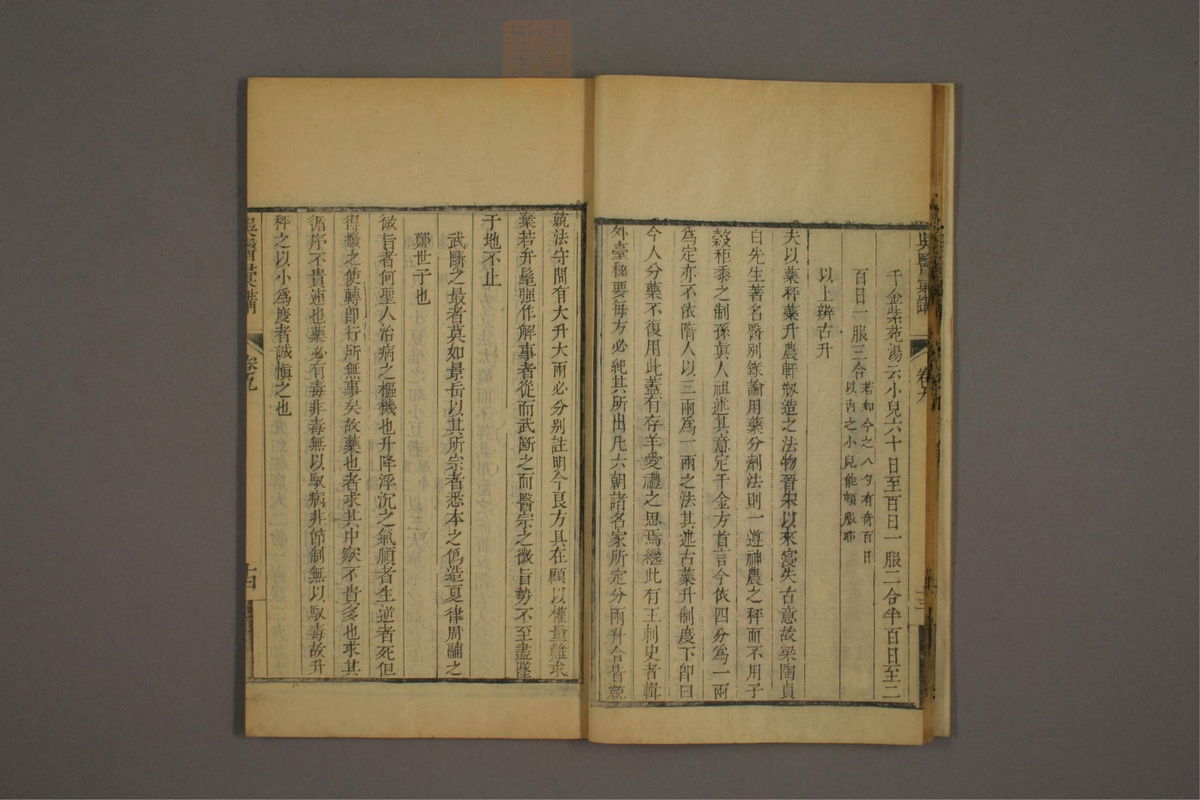 千金紫菀湯云小兒六十日至百日一服二合半百日至二
百日一服三合若如今之八勺有奇百日
以內之小兒能頓服耶
以上辨古升
夫以藥秤藥升農軒制造之法物晉宋以來寖失古意故梁陶貞
白先生著名醫別錄論用藥分劑法則一遵神農之秤而不用子
穀秬黍之制孫真人祖述其意定千金方首言今依四分為一兩
為定亦不依隋人以三兩為一兩之法其述古藥升制度下即曰
今人分藥不復用此蓋有存羊愛禮之思焉繼此有王刺史者輯
外臺秘要每方必紀其所出凡六朝諸名家所定分兩升合皆兢
吳醫彙講
卷九
兢法守間有大升大兩必分別註明今良方具在顧以權量難求
棄若弁髦強作解事者從而武斷之而醫宗之微旨勢不至盡墜
于地不止
武斷之最者莫如景岳以其所宗者悉本之偽造夏律周鬴之
鄭世子也
微旨者何聖人治病之樞機也升降浮沉之氣順者生逆者死但
得撥之使轉即行所無事矣故藥也者求其中窾不貴多也求其
循序不貴速也藥必有毒非毒無以馭病非節制無以馭毒故升
秤之以小為度者誠慎之也
吳醫彙講
卷九
十四